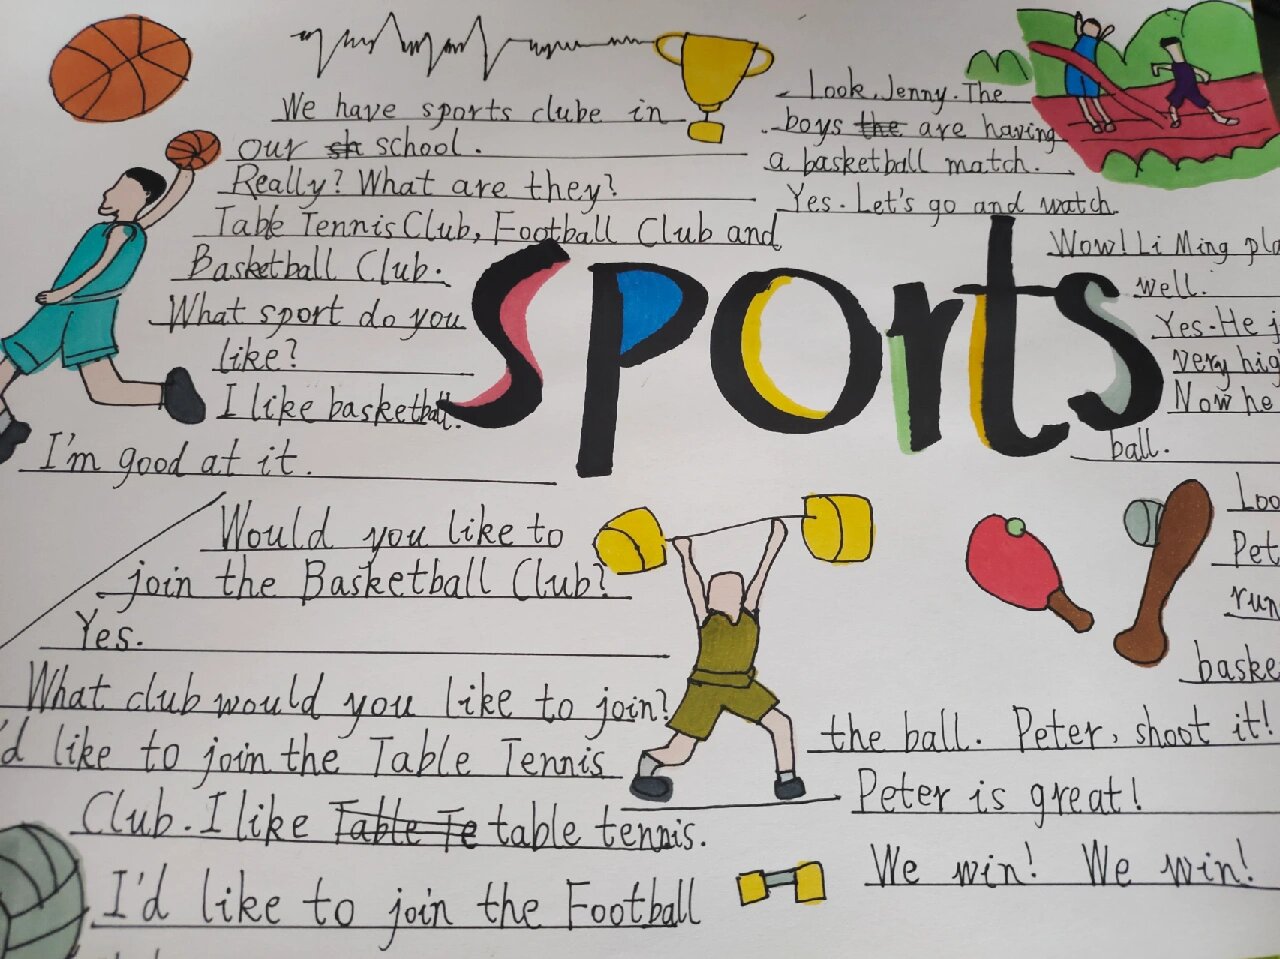 We have sports clube in
our sh school.
Really? What are they?
Table Tennis Club, Football Club and
Basketball Club.
What sport do you
like?
I like basketball.
I'm good at it.
Would you like to
join the Basketball Club?
Yes.
What club would you like to join?
'd like to join the Table Tennis
Club. I like Table Te table tennis.
I'd like to join the Football
sports
Look, Jenny. The
boys the are having
a basketball match.
Yes. Let's go and watch
Wow! Li Ming
well.
Yes. He
very
Now he
ball.
the ball. Peter, shoot it!
Peter is great!
We win! We win!